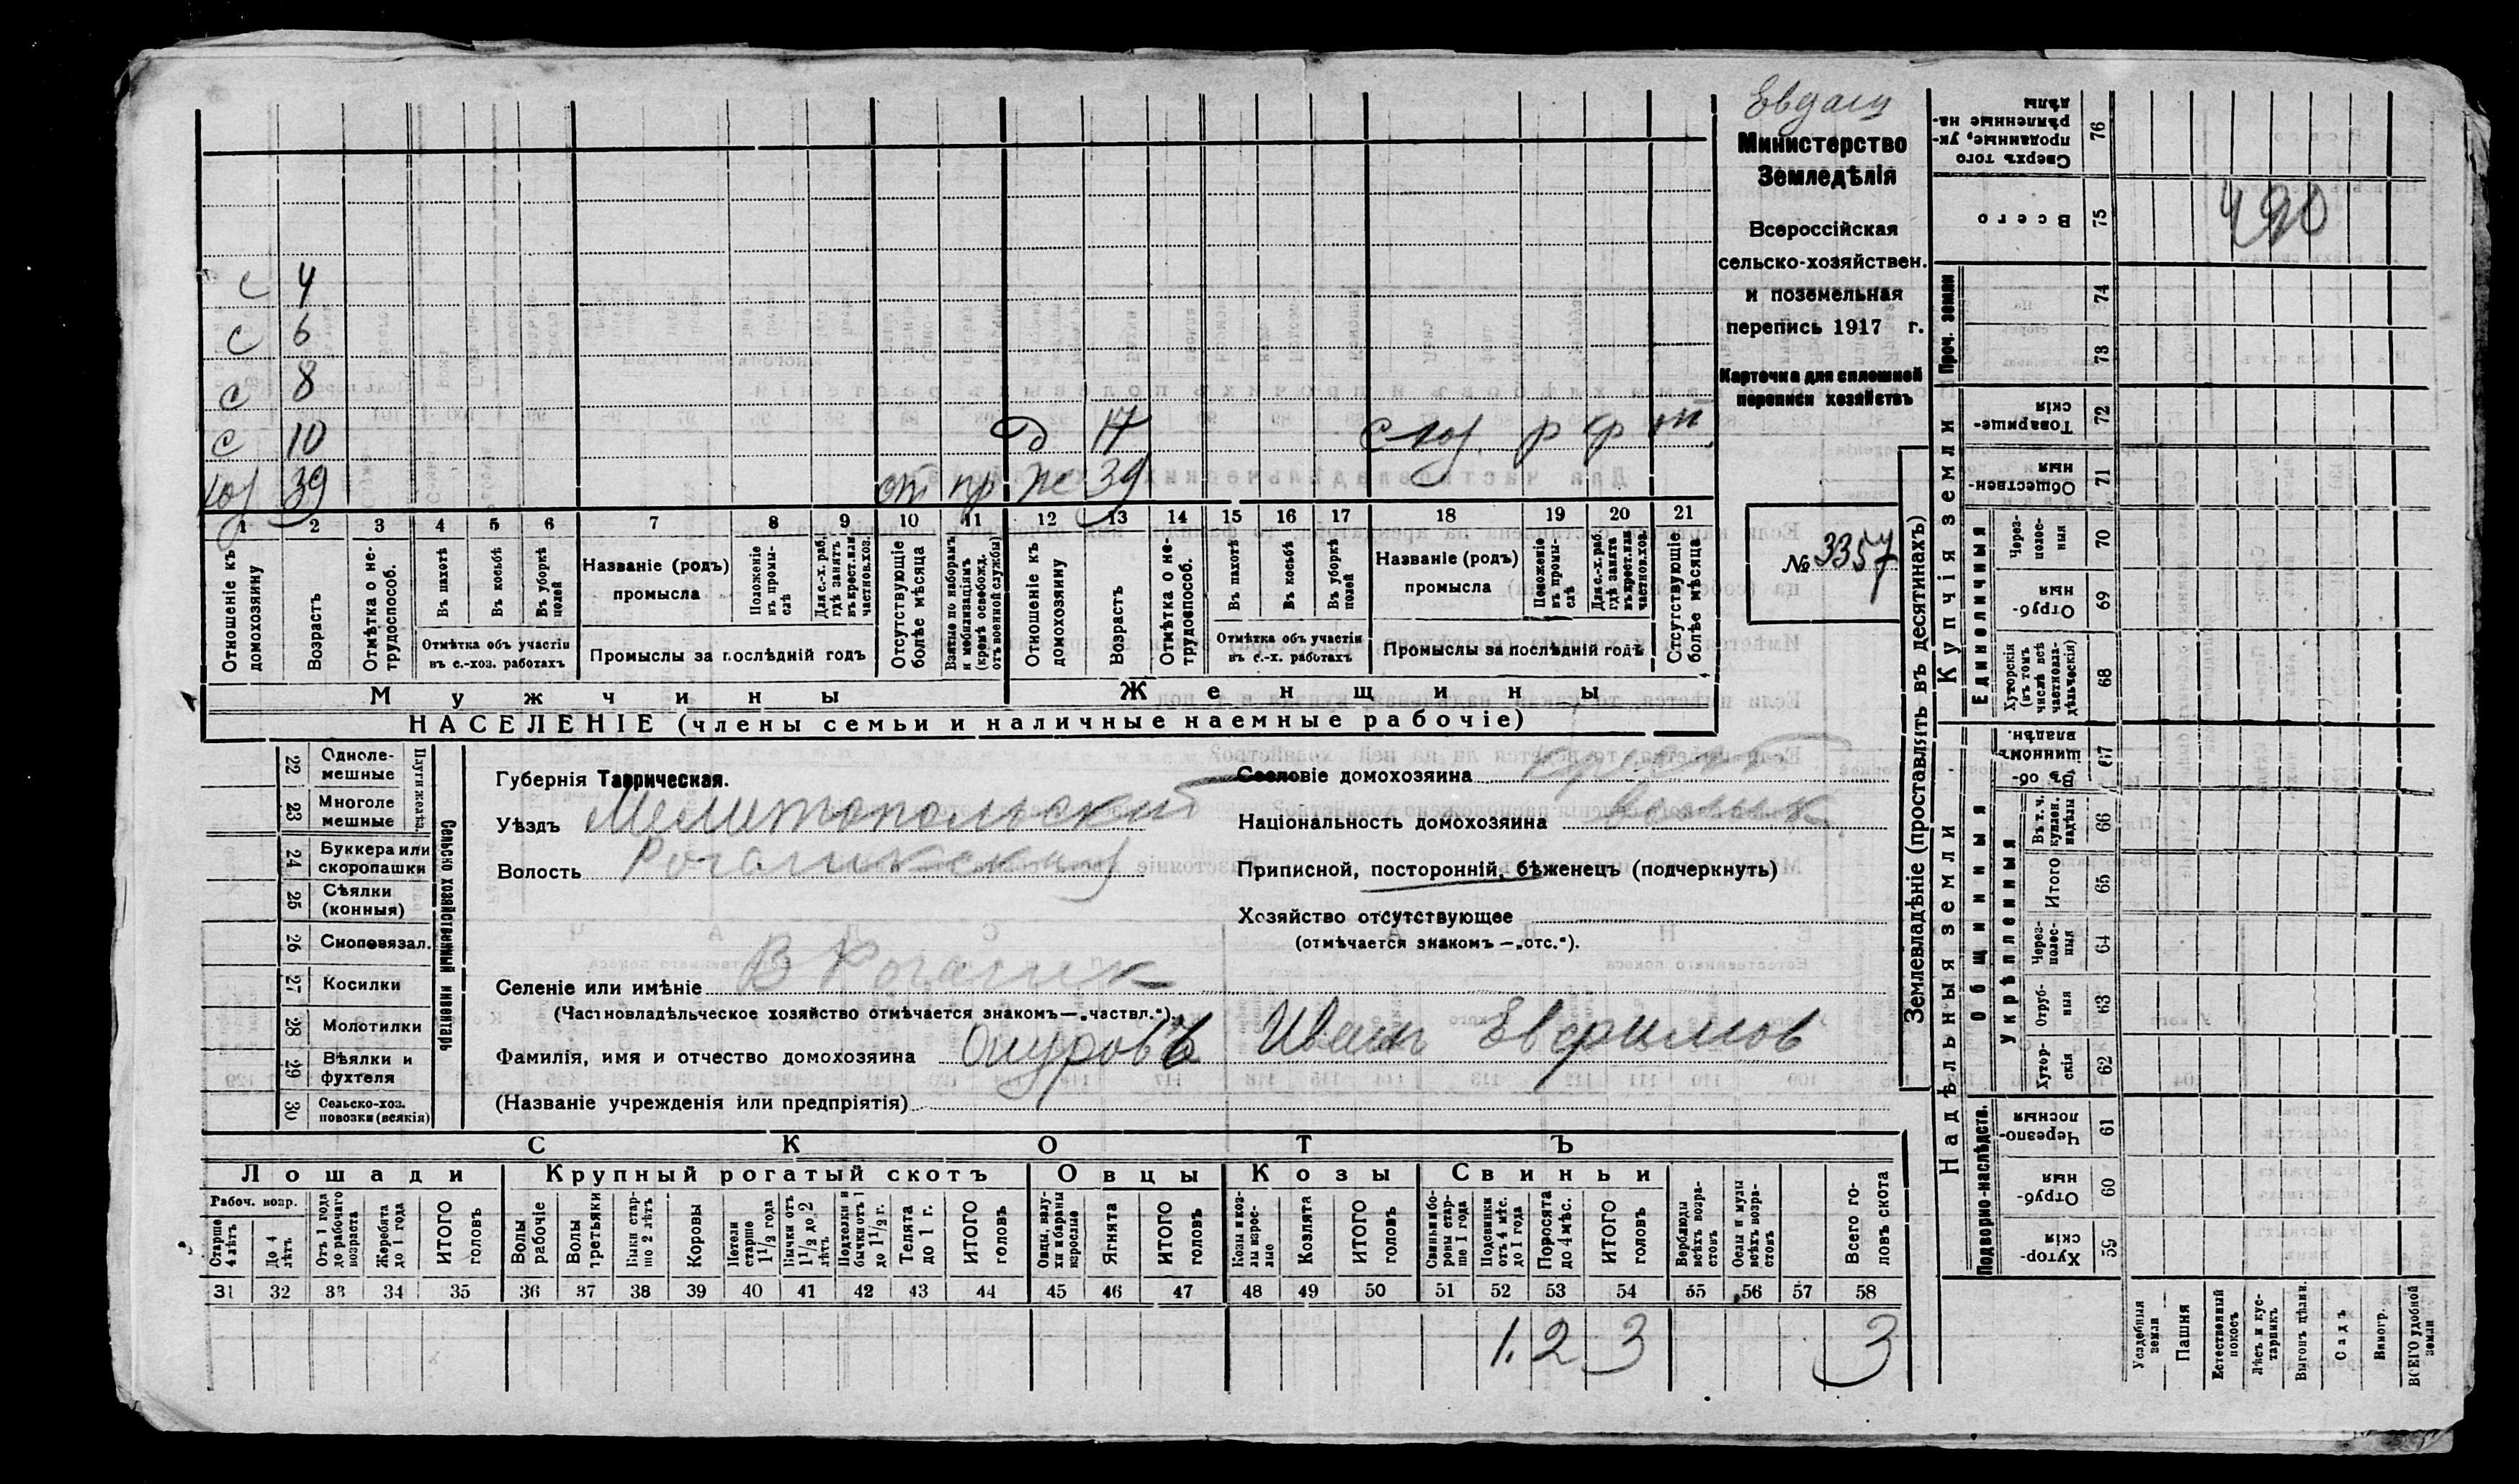 Министерство
Земледѣлія
Всероссійская
сельско-хозяйствен.
и поземельная
перепись 1917 г.
Карточка для сплошной
переписи хозяйствъ
№ 3357
с 4
с 6
с 8
с 10 Д 17
39 ж 39
1 2 3 4 5 6 7 8 9 10 11 12 13 14 15 16 17 18 19 20 21
Отношеніе къ домохозяину
Возрастъ
Отмѣтка о не-трудоспособ.
Въ пахотѣ
Въ косьбѣ
Въ уборкѣ полей
Отмѣтка объ участіи
въ с.-хоз. работахъ
Названіе (родъ)
промысла
Положеніе въ промы-слѣ
Для с.-х. раб. гдѣ занятъ въ крест. или частнов. хоз.
Промыслы за послѣдній годъ
Отсутствующіе болѣе мѣсяца
Взятые по наборамъ и мобилизаціямъ (кромѣ освобожд. отъ военной службы)
Отношеніе къ домохозяину
Возрастъ
Отмѣтка о не-трудоспособ.
Въ пахотѣ
Въ косьбѣ
Въ уборкѣ полей
Отмѣтка объ участіи
въ с.-х. работахъ
Названіе (родъ)
промысла
Положеніе въ промы-слѣ
Для с.-х. раб. гдѣ занята въ крест. или частнов. хоз.
Промыслы за послѣдній годъ
Отсутствующіе болѣе мѣсяца
Мужчины Женщины
НАСЕЛЕНІЕ (члены семьи и наличные наемные рабочіе)
22 Одноле-мешные
23 Многоле мешные
24 Буккера или скоропашки
25 Сѣялки (конныя)
26 Сноповязал.
27 Косилки
28 Молотилки
29 Вѣялки и фухтеля
30 Сельско-хоз. повозки (всякія)
Сельско хозяйственный инвентарь
Губернія Таврическая.
Уѣздъ Мелитопольскій
Волость Рогачикская
Селеніе или имѣніе В Рогачик
(Частновладѣльческое хозяйство отмѣчается знакомъ—„частвл.“).
Фамилія, имя и отчество домохозяина Ощуровъ Иван Евфимов
(Названіе учрежденія или предпріятія)
Сословіе домохозяина
Національность домохозяина
Приписной, посторонній, бѣженецъ (подчеркнуть)
Хозяйство отсутствующее
(отмѣчается знакомъ—„отс.“).
СКОТЪ
Лошади Крупный рогатый скотъ Овцы Козы Свиньи
Рабоч. возр.
Старше 4 лѣтъ
До 4 лѣтъ
Отъ 1 года до рабочаго возраста
Жеребята до 1 года
ИТОГО головъ
Волы рабочіе
Волы третьяки
Быки стар-ше 2 лѣтъ
Коровы
Нетели старше 1 1/2 года
Бычки отъ 1 1/2 до 2 лѣтъ
Подтелки и бычки отъ 1 до 1 1/2 г.
Телята до 1 г.
ИТОГО головъ
Овцы, валу-хи и бараны взрослые
Ягнята
ИТОГО головъ
Козы и коз-лы взрос-лые
Козлята
ИТОГО головъ
Свиньи и бо-ровы стар-ше 1 года
Подсвинки отъ 4 мѣс. до 1 года
Поросята до 4 мѣс.
ИТОГО головъ
Верблюды всѣхъ возра-стовъ
Ослы и мулы всѣхъ возра-стовъ
Всего го-ловъ скота
31 32 33 34 35 36 37 38 39 40 41 42 43 44 45 46 47 48 49 50 51 52 53 54 55 56 57 58
1. 2 3 3
Землевладѣніе (проставлять въ десятинахъ)
Надѣльныя земли Купчія земли Проч. земли
Подворно-наслѣдств.
Общинныя
Укрѣпленныя
Единоличныя
Хутор-скія 59
Отруб-ныя 60
Черезпо-лосныя 61
Хутор-скія 62
Отруб-ныя 63
Через-полос-ныя 64
Итого 65
Въ т. ч. куплен. надѣлы 66
Въ об-щинномъ владѣн. 67
Хуторскія (въ томъ числѣ всѣ частновла-дѣльческія) 68
Отруб-ныя 69
Через-полос-ныя 70
Обществен-ныя 71
Товарище-скія 72
73
74
Всего 75
Сверхъ того проданные, ук-рѣпленные на-дѣлы 76
Усадебная земля
Пашня
Естественный покосъ
Лѣсъ и кус-тарникъ
Выгонъ цѣлин.
Садъ
Виногр.
ВСЕГО удобной земли